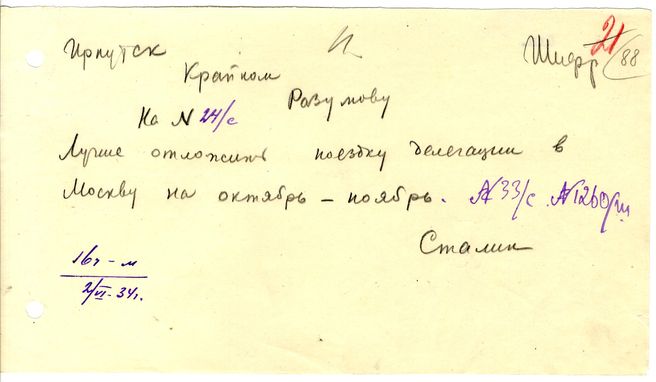 Иркутск
Шифр 21/88
Крайком
Разумову
На N 24/с
Лучше отложить поездку делегации в
Москву на октябрь – ноябрь. N 33/с. N 1260/ш
Сталин
16ч – м
2/VI-34г.